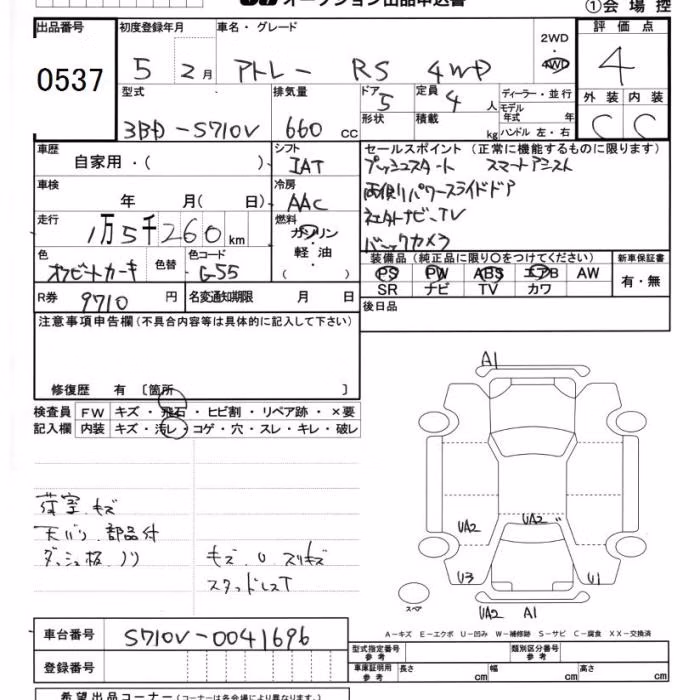 オークション出品申込書
①会場控
出品番号 初度登録年月 車名・グレード 2WD・4WD 評価点
0537 5 2月 アトレー RS 4WD 4
型式 排気量 ドア 定員 ディーラー・並行 外装 内装
3BD-S710V 660cc 5 4人 モデル年式 年 C C
形状 積載 kg ハンドル 左・右
車歴 自家用・( ) シフト IAT
車検 年 月(日) 冷房 AAC
走行 1万5千260km 燃料 ガソリン・軽油・
色 オフビートカーキ 色替 色コード G-55
R券 9710円 名変通知期限 月 日
セールスポイント (正常に機能するものに限ります)
プッシュスタート スマートアシスト
両側パワースライドドア
社外ナビ、TV
バックカメラ
装備品 (純正品に限り○をつけてください) 新車保証書
PS PW ABS エアB AW 有・無
SR ナビ TV カワ
後日品
注意事項申告欄 (不具合内容等は具体的に記入して下さい)
修復歴 有 〔箇所 〕
検査員 FW キズ・飛石・ヒビ割・リペア跡・×要
記入欄 内装 キズ・汚レ・コゲ・穴・スレ・キレ・破レ
荷室.キズ
天バリ.部品付
ダッシュ板.ノリ
キズ.U.スリキズ
スタッドレスT
A1
UA2 UA2
U3 U1
スペア
UA2 A1
A-キズ E-エクボ U-凹み W-補修跡 S-サビ C-腐食 XX-交換済
車台番号 S710V-0041696
登録番号
型式指定番号 参考 類別区分番号 参考
車庫証明用 参考 長さ cm 幅 cm 高さ cm
希望出品コーナー (コーナーは各会場により異なります)